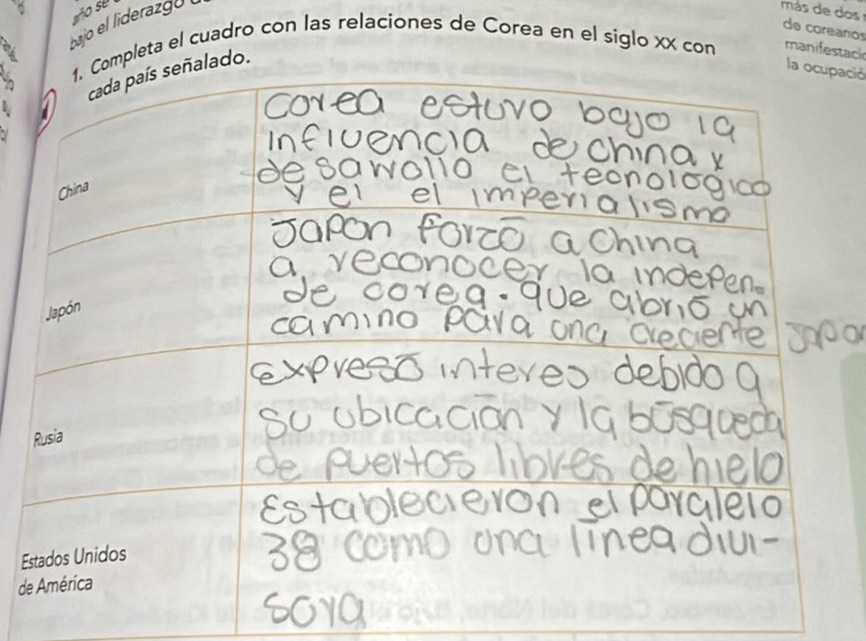 año se
bajo el liderazgo
más de dos
de coreanos
manifestaci
la ocupació
1. Completa el cuadro con las relaciones de Corea en el siglo XX con
cada país señalado.
China
Corea estuvo bajo la
influencia de china y
desawollo el teonológico
y el el imperialismo
Japón
Japon forzó a china
a reconocer la indepen.
de corea. que abrió un
camino para una creciente Japo
Rusia
expresó interes debido a
su ubicacion y la búsqueda
de puertos libres de hielo
Estados Unidos
de América
Establecieron el paralelo
38 como una linea divi-
sora